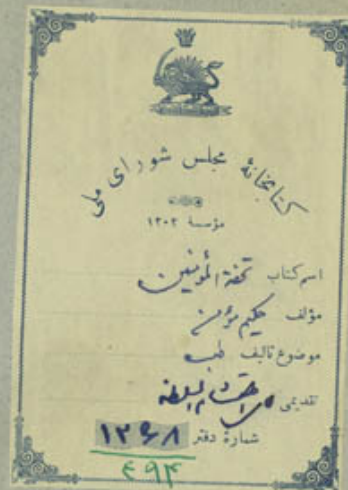 کتابخانهٔ مجلس شورای ملی
مؤسسهٔ ۱۳۰۲
اسم کتاب تحفة المؤمنین
مؤلف حکیم مؤمن
موضوع تالیف طب
تقدیمی احتشام السلطنه
شمارهٔ دفتر ۱۳۶۸
۴۹۴